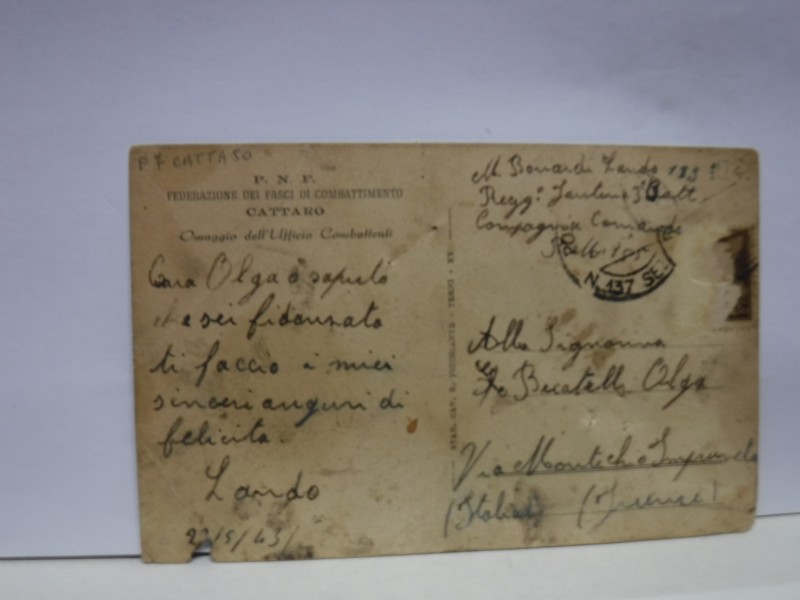 P7 CATTARO
P. N. F.
FEDERAZIONE DEI FASCI DI COMBATTIMENTO
CATTARO
Omaggio dell'Ufficio Combattenti
Cara Olga ò saputo
che sei fidanzata
ti faccio i miei
sinceri auguri di
felicita.
Lando
22/5/43
M. Bonardi Lando
Regg.
Compagnia Comando
N. 137 SE
Alla Signorina
Becatelli Olga
Via Montechio Impruneta
(Italia) (Firenze)
TERNI - XX